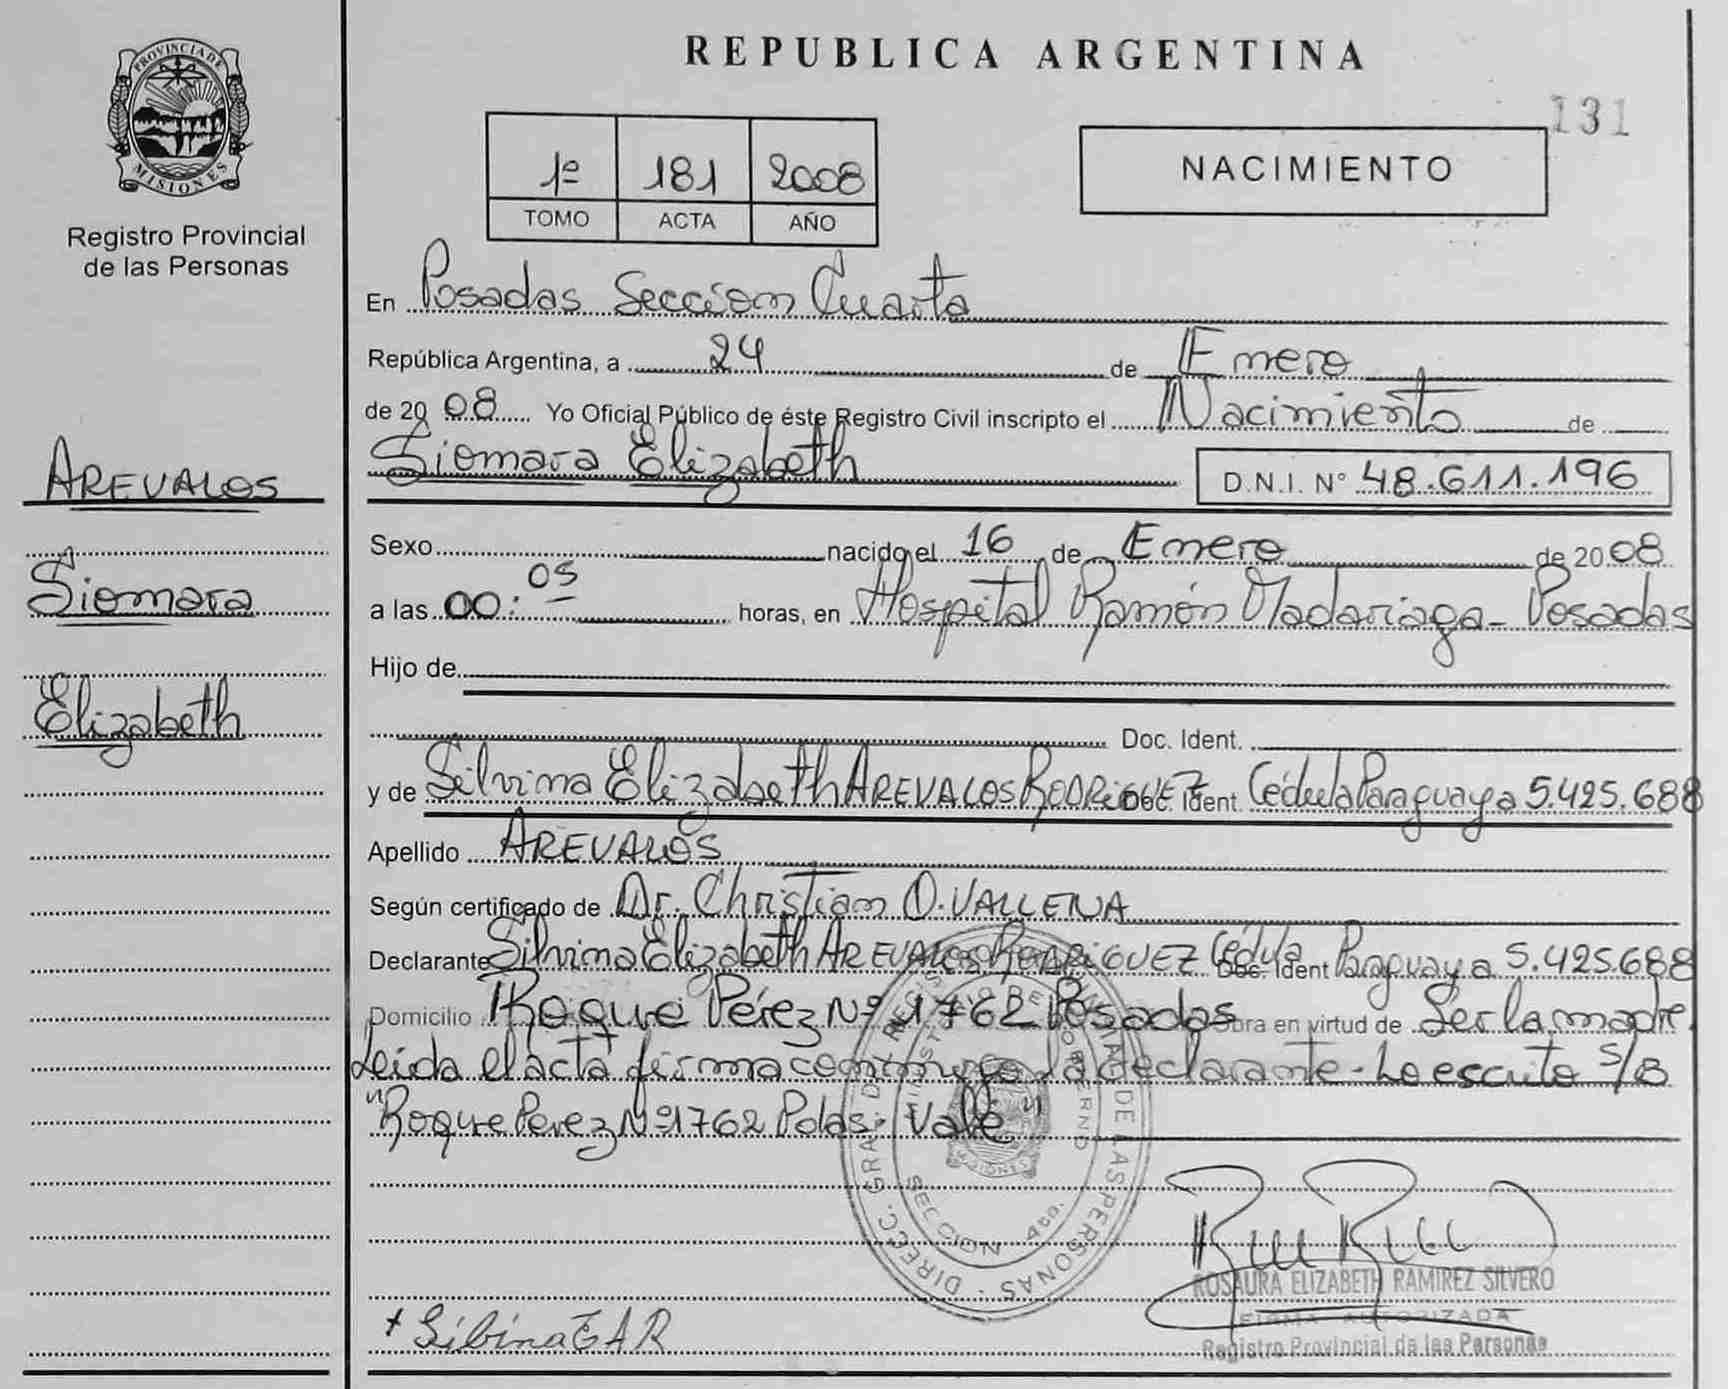 REPUBLICA ARGENTINA
131
PROVINCIA DE
MISIONES
Registro Provincial
de las Personas
1º 181 2008
TOMO ACTA AÑO
NACIMIENTO
En Posadas Sección Cuarta
República Argentina, a 24 de Enero
de 2008 Yo Oficial Público de éste Registro Civil inscripto el Nacimiento de
Siomara Elizabeth D.N.I. Nº 48.611.196
AREVALOS
Siomara
Elizabeth
Sexo nacido el 16 de Enero de 2008
a las 00:05 horas, en Hospital Ramón Madariaga - Posadas
Hijo de
Doc. Ident.
y de Silvina Elizabeth AREVALOS RODRIGUEZ Doc. Ident. Cédula Paraguaya 5.425.688
Apellido AREVALOS
Según certificado de Dr. Christian O. VALLENA
Declarante Silvina Elizabeth AREVALOS RODRIGUEZ Doc. Ident Cédula Paraguaya 5.425.688
Domicilio Roque Pérez Nº 1762 Posadas Obra en virtud de Ser la madre.
Leida el acta firma conmigo la declarante - Lo escrito S/B
"Roque Perez Nº 1762 Pdas. Vale"
DIRECC. GRAL. DE LAS PERSONAS
SECCION 4ta.
MISIONES
ROSAURA ELIZABETH RAMIREZ SILVERO
FIRMA AUTORIZADA
Registro Provincial de las Personas
+ Silbina E A R